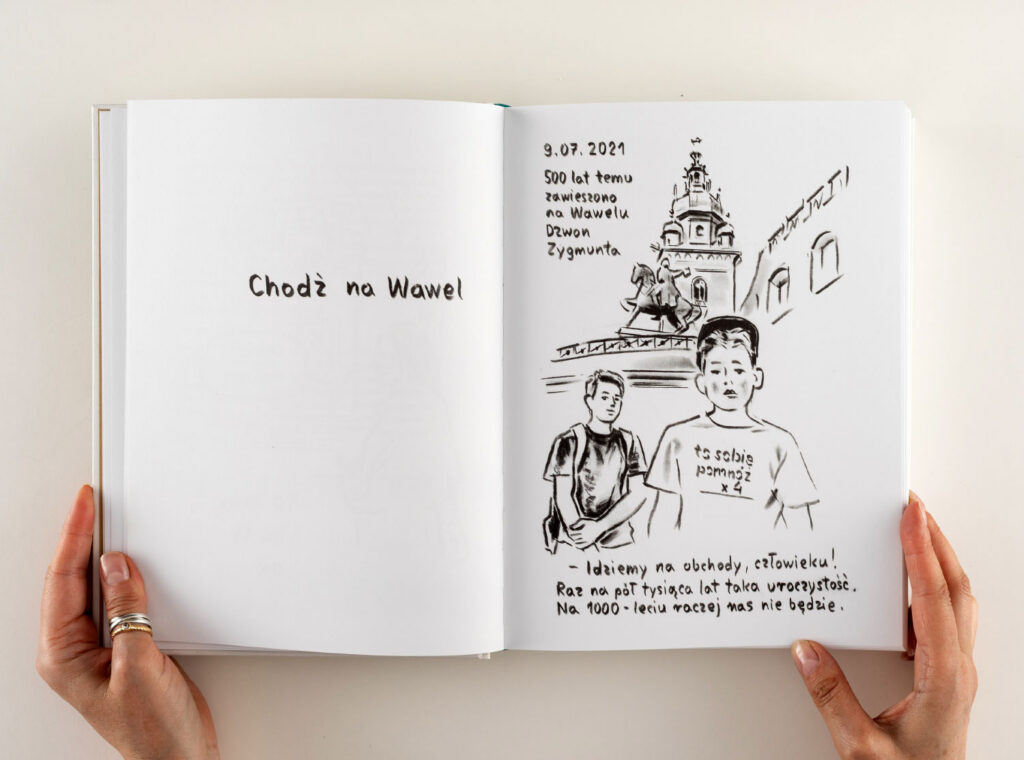 Chodź na Wawel
9.07.2021
500 lat temu
zawieszono
na Wawelu
Dzwon
Zygmunta
to sobie
pomnóż
x 4
- Idziemy na obchody, człowieku!
Raz na pół tysiąca lat taka uroczystość.
Na 1000-leciu raczej nas nie będzie.